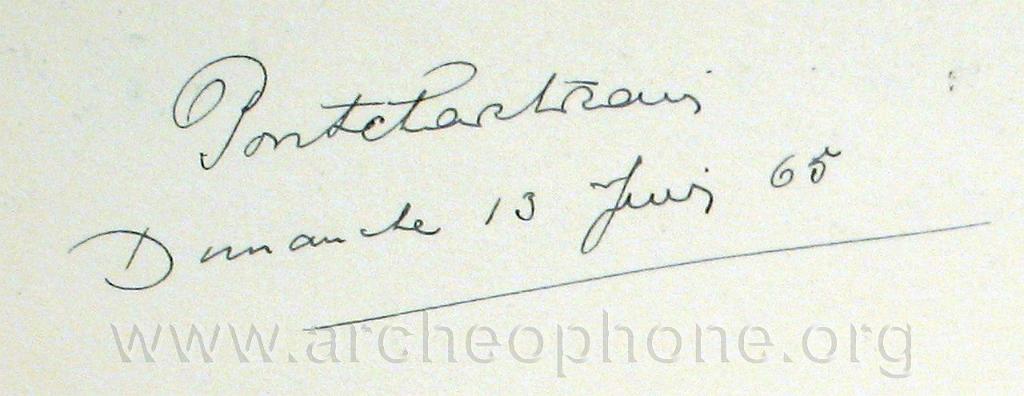 Pontchartrain
Dimanche 13 Juin 65
www.archeophone.org